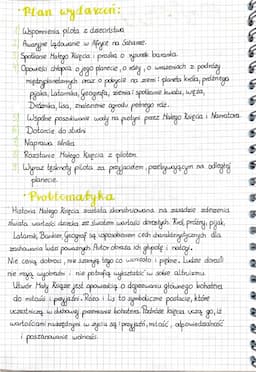 Plan wydarzeń:
Wspomnienia pilota z dzieciństwa
Awaryjne lądowanie w Afryce na Saharze.
Spotkanie Małego Księcia i prośba o rysunek baranka.
Opowieść chłopca o jego planecie, o róży, o wrażeniach z podróży
międzyplanetarnych oraz o pobycie na ziemi: planeta króla, próżnego
pijaka, Latarnika, Geografa, ziemia i spotkanie kwiatu, węża,
Dróżnika, lisa, zwiedzenie ogrodu pełnego róż.
Wspólne poszukiwanie wody na pustyni przez Małego Księcia i Narratora
Dotarcie do studni
Naprawa silnika
Rozstanie Małego Księcia z pilotem.
Wyraz tęsknoty pilota za przyjacielem, przebywającym na odległej
planecie.
Problematyka
Historia Małego Księcia została skonstruowana na zasadzie zderzenia
świata wartości dziecka ze światem wartości dorosłych. Król, próżny, pijak,
Latarnik, Bankier, Geograf są uosobieniem cech charakterystycznych dla
zachowania ludzi poważnych. Autor obnaża ich głupotę i nałogi.
Nie cenią dobroci, nie szanują tego co wzniosłe i piękne. Ludzie dorośli
nie mają wyobraźni i nie potrafią wykształcić w sobie altruizmu
Utwór Mały Książę jest opowieścią o dojrzewaniu głównego bohatera
do miłości i przyjaźni. Róża i Lis to symboliczne postacie, które
uczestniczą w duchowej przemianie bohatera. Podróże księcia uczą go, iż
wartościami nadrzędnymi w życiu są: przyjaźń, miłość, odpowiedzialność
i poszanowanie wolności.